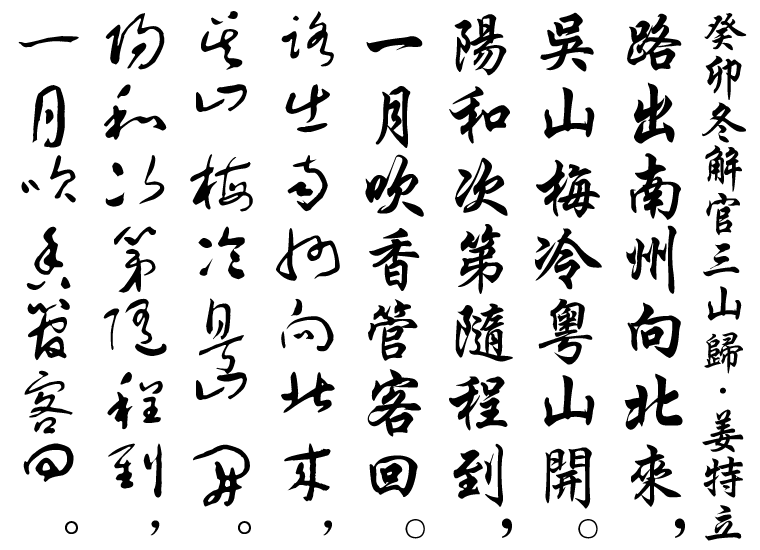 癸卯冬解官三山歸·姜特立
路出南州向北來，
吳山梅冷粵山開。
陽和次第隨程到，
一月吹香管客回。
路出南州向北來，
吳山梅冷粵山開。
陽和次第隨程到，
一月吹香管客回。